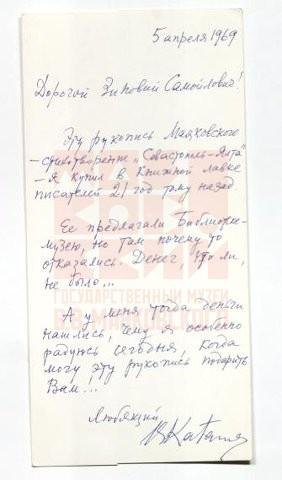 5 апреля 1969
Дорогой Зиновий Самойлович!
Эту рукопись Маяковского
– стихотворение „Севастополь–Ялта"
– Я купил в Книжной лавке
писателей 21 год тому назад.
Ее предлагали Библиотеке-
музею, но там почему то
отказались. Денег, что ли,
не было...
А у меня тогда деньги
нашлись, чему я особенно
радуюсь сегодня, когда
могу эту рукопись подарить
Вам!...
Любящий
ВКатанян
ГОСУДАРСТВЕННЫЙ МУЗЕЙ